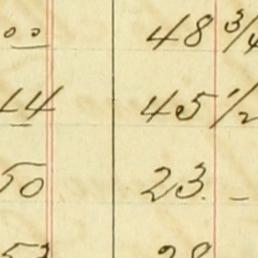 00 48 3/4
44 45 1/2
50 23. -
53 28